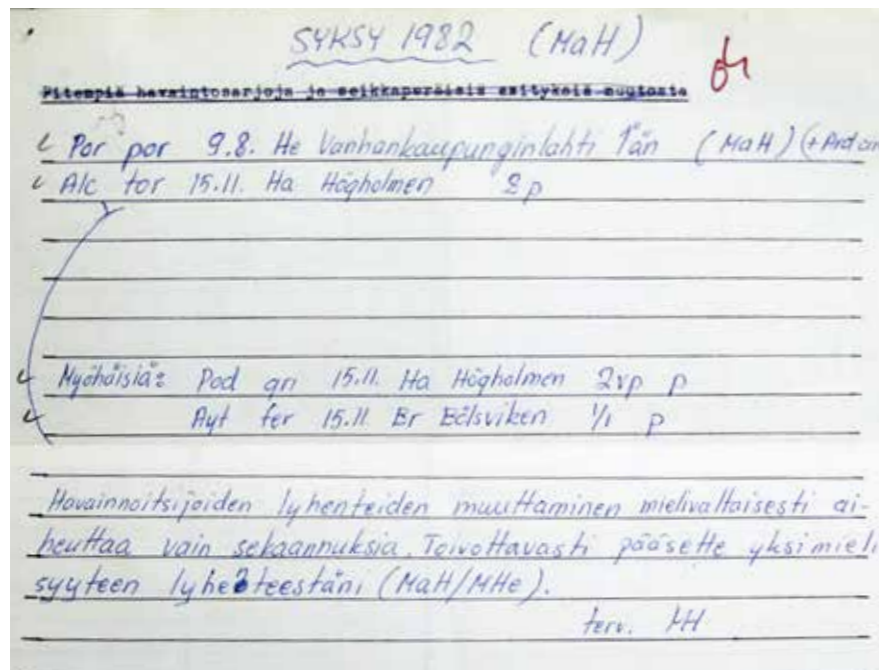 SYKSY 1982 (MaH)
Pitempiä havaintosarjoja ja seikkaperäisiä esityksiä muutosta
Por por 9.8. He Vanhankaupunginlahti 1 än (MaH) (+
Alc tor 15.11. Ha Högholmen 2 p
Myöhäisiä: Pod gri 15.11. Ha Högholmen 2vp p
Ayt fer 15.11. Er Bölsviken 1/1 p
Havainnoitsijoiden lyhenteiden muuttaminen mielivaltaisesti ai-
heuttaa vain sekaannuksia. Toivottavasti pääsette yksimieli
syyteen lyhenteestäni (MaH/MHe).
terv. MH